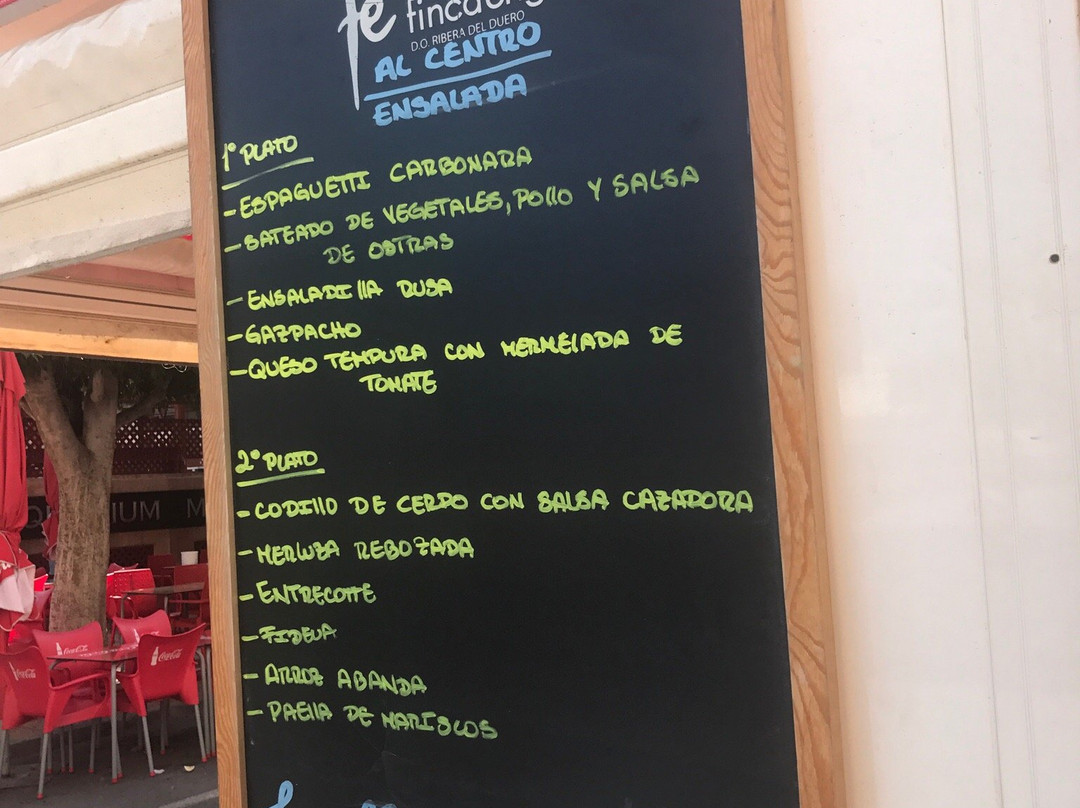 fe
D.O. RIBERA DEL DUERO
AL CENTRO
ENSALADA
1º PLATO
- ESPAGUETTI CARBONARA
- SATEADO DE VEGETALES, POLLO Y SALSA
DE OSTRAS
- ENSALADILLA RUSA
- GAZPACHO
- QUESO TEMPURA CON MERMELADA DE
TOMATE
2º PLATO
- CODILLO DE CERDO CON SALSA CAZADORA
- MERLUZA REBOZADA
- ENTRECOTTE
- FIDEUA
- ARROZ ABANDA
- PAELLA DE MARISCOS
Coca-Cola
Coca-Cola
Coca-Cola